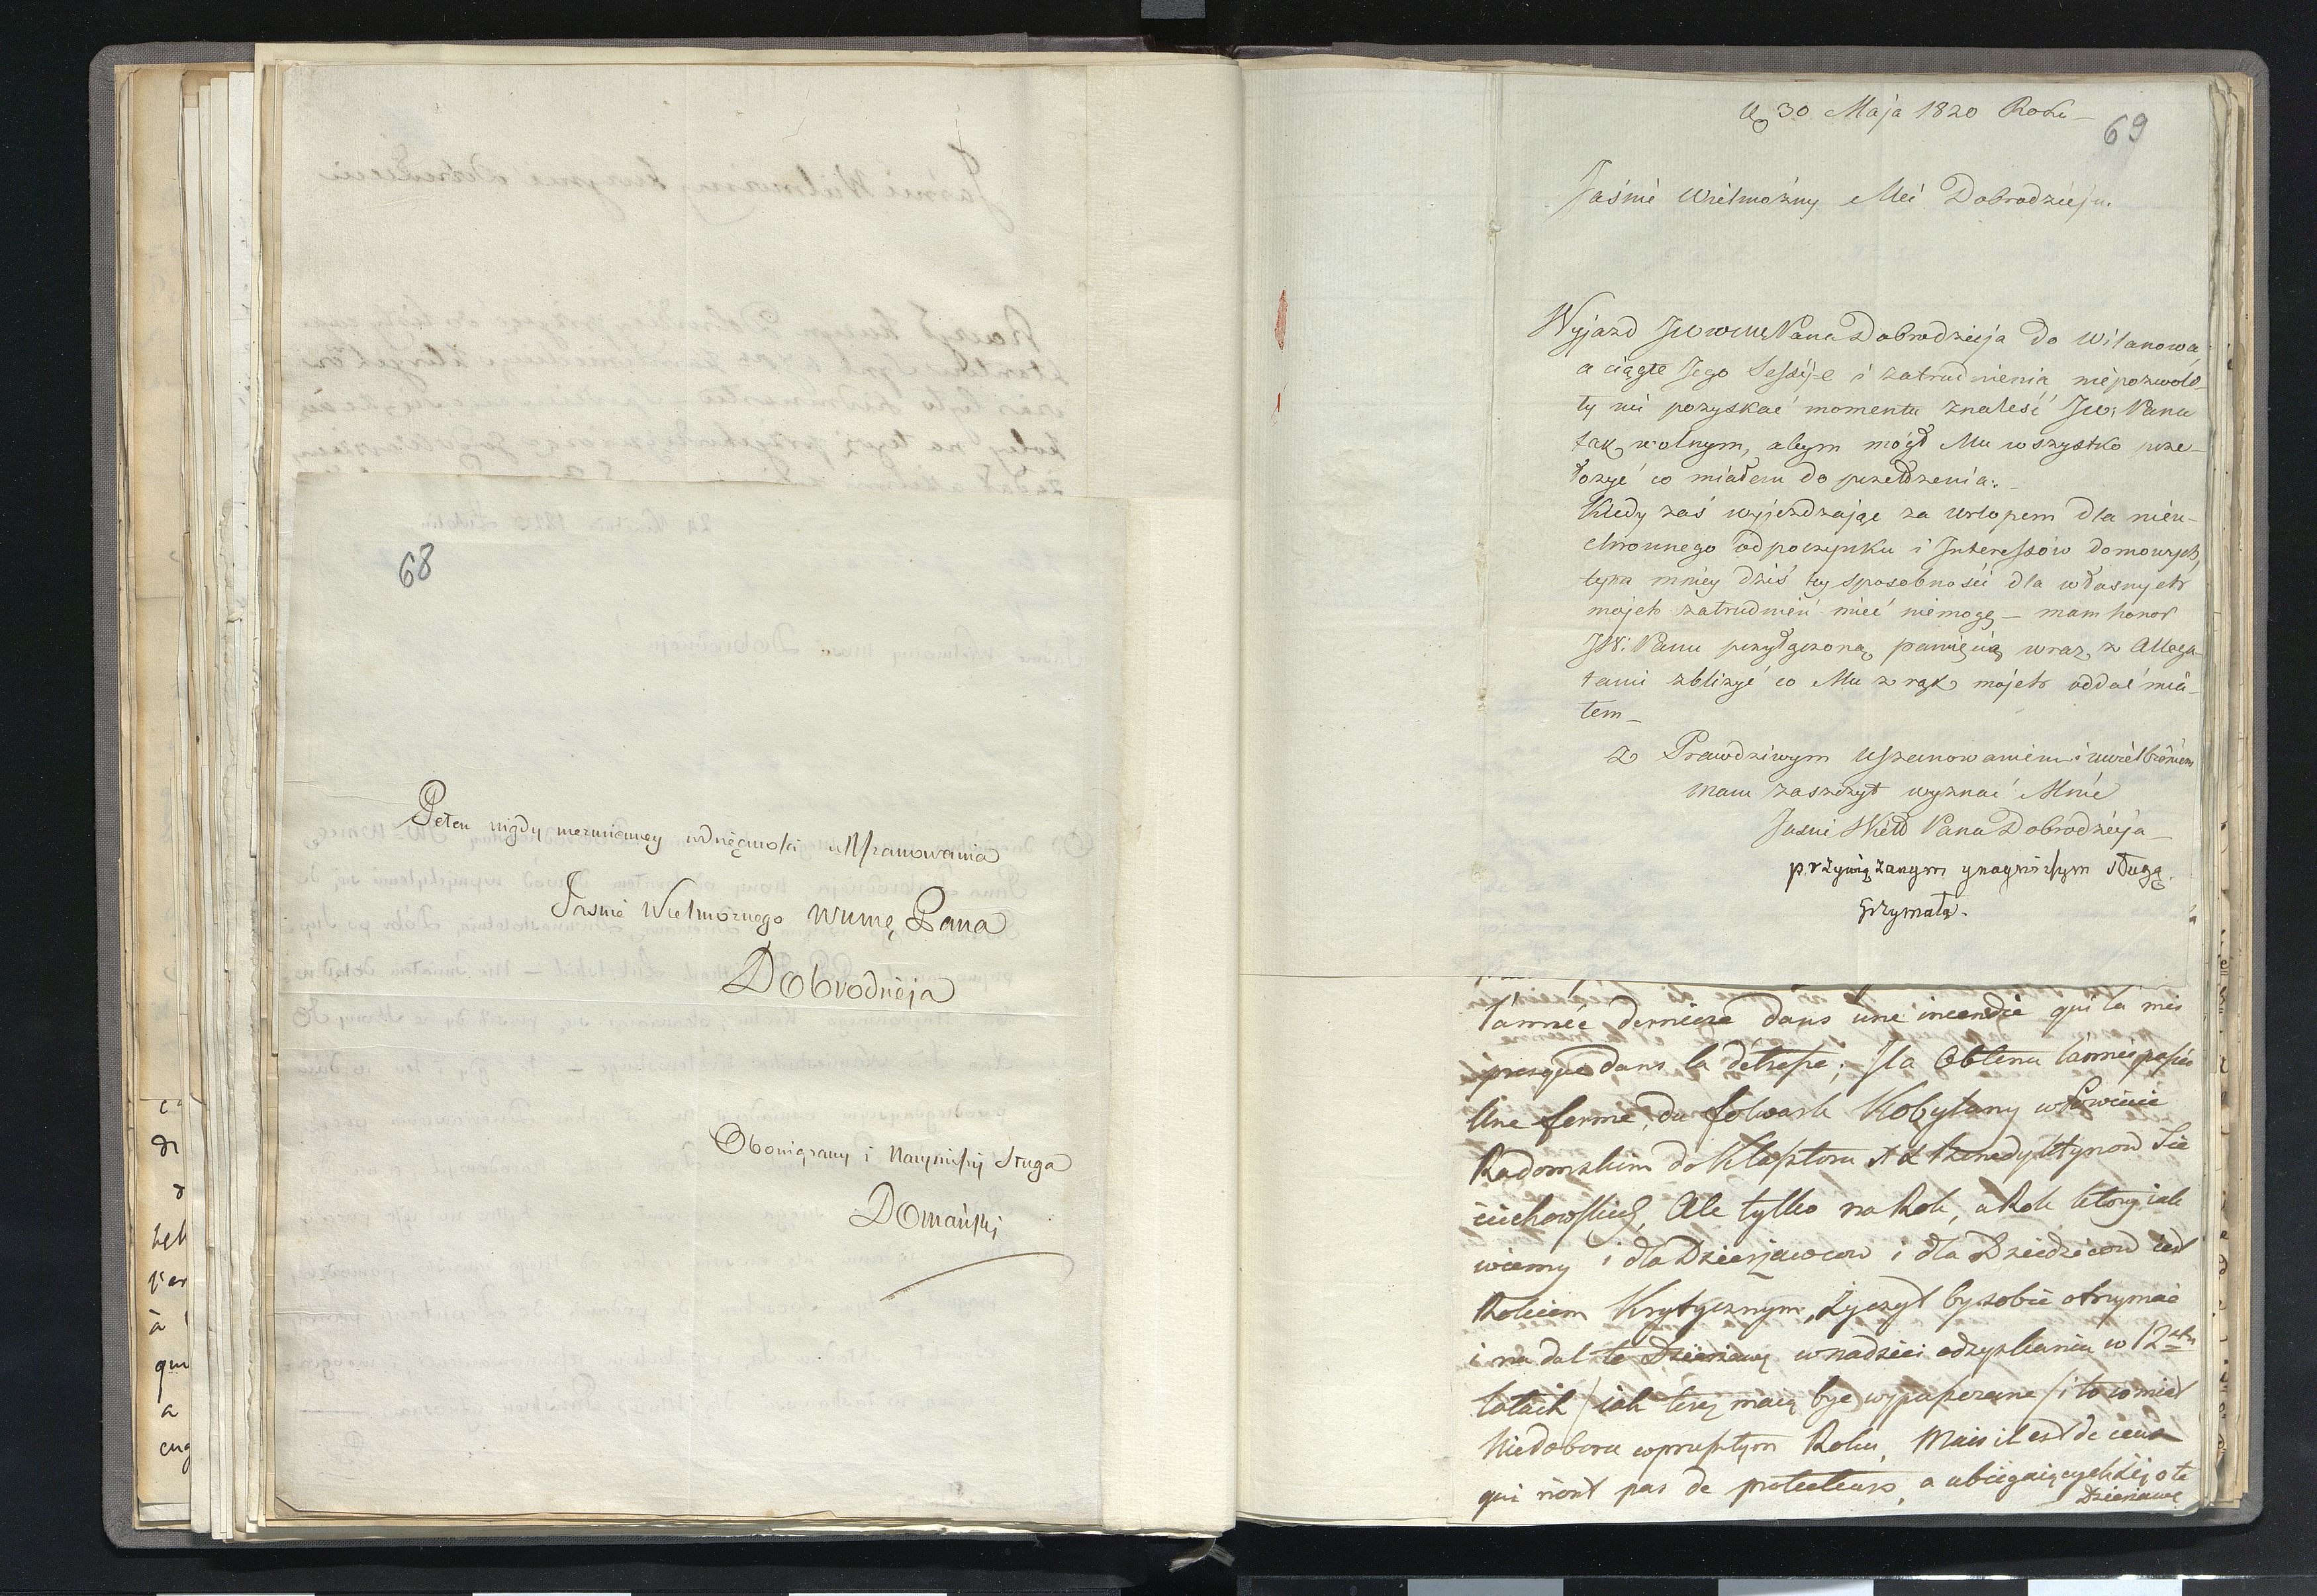 68
Pełen nigdy niezmienney wdzięcznosci uszanowania
Jasnie Wielmoznego WMMę Pana
Dobrodzieja
Obowiązany i Nayniższy Sługa
Domański
30 Maja 1820 Roku
69
Jaśnie Wielmożny Mći Dobrodzieju.
Wyjazd JWWMę Pana Dobrodzieja do Wilanowa,
a ciągłe Jego Sessyje i zatrudnienia niepozwoli-
ły mi pozyskać momentu znaleść JW: Pana
tak wolnym, abym mógł Mu wszystko prze-
łożyć co miałem do powiedzenia.
Kiedy zaś wyjeżdzając za Urlopem dla nieu-
chronnego odpoczynku i Interessów domowych,
tym mniey dziś tey sposobności dla własnych
mojch zatrudnień mieć niemogę – mam honor
JW: Panu przyłączoną pamięcią wraz z Allega-
tami zbliżyć co Mu z rąk mojch oddać mia-
łem –
Z Prawdziwym Uszanowaniem i uwielbieniem
mam zaszczyt wyznać Mnie
Jaśnie Wiel Pana Dobrodzieja
przywiązanym ynayniższym sługą.
Grzymała.
l'année derniere dans une incendie qui l'a mis
presque dans la détresse; Il a Obtenu l'année passée
Une ferme, du folwark Kobylany w Powiecie
Radomskim do Klasztoru XX Benedyktynow Sie
ciechowskich, Ale tylko na Rok, a Rok ktory iak
wiemy i dla Dzierzawcow i dla Dziedzicow iest
Rokiem Krytycznym, Zyczył by sobie otrzymać
i na dal tę Dzierzawę w nadziei odzyskania w 12stu
latach / iak teraz maią być wypuszczane / to co miał
Niedoboru w przeszłym Roku, Mais il est de ceux
qui n'ont pas de protecteurs, a ubiegaiących się o tę
Dzierzawę